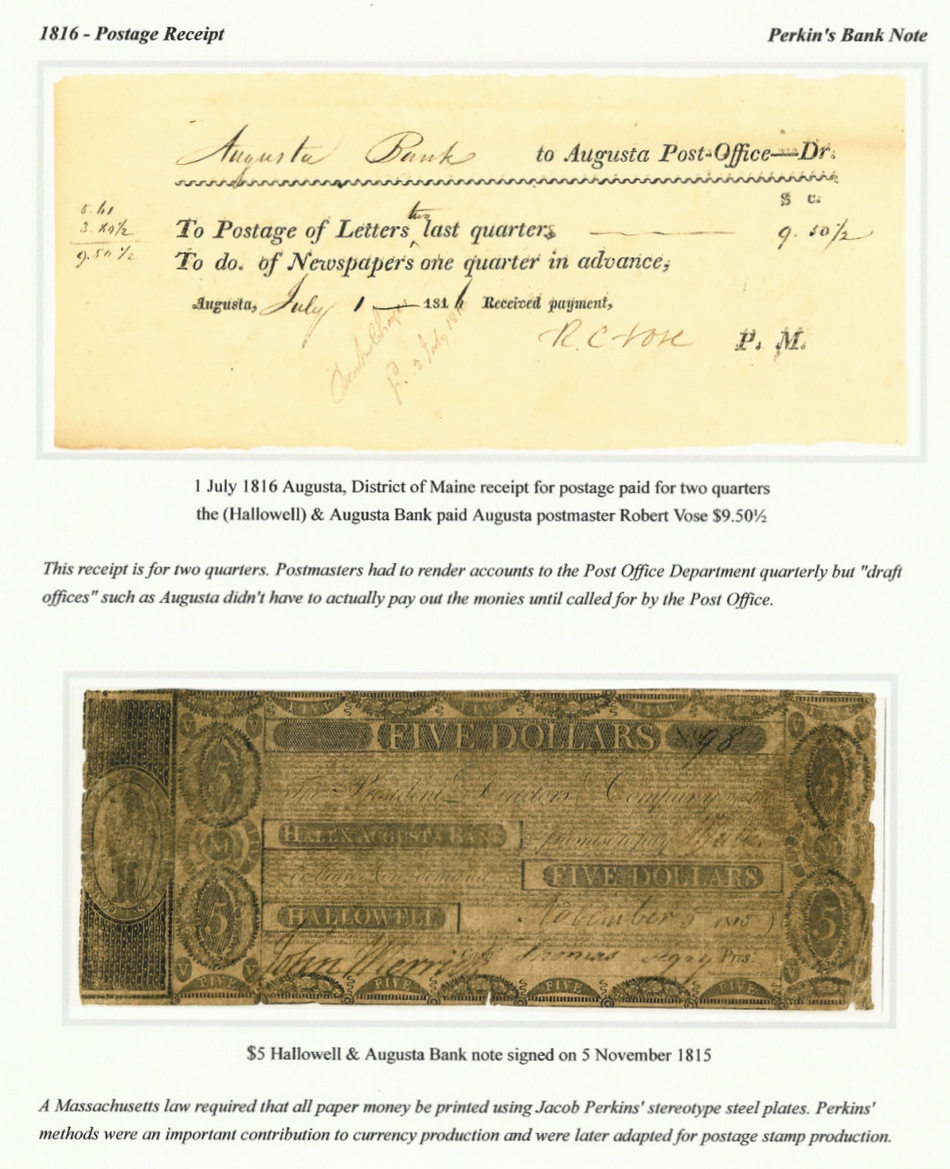 1816 - Postage Receipt Perkin's Bank Note
Augusta Bank to Augusta Post-Office—Dr.
$ c.
5.61
3.89½
9.50½
two
To Postage of Letters ‸ last quarters 9. 50½
To do. of Newspapers one quarter in advance,
Augusta, July 1 — 1816 Received payment,
R. C. Vose P. M.
2 July 1816
1 July 1816 Augusta, District of Maine receipt for postage paid for two quarters
the (Hallowell) & Augusta Bank paid Augusta postmaster Robert Vose $9.50½
This receipt is for two quarters. Postmasters had to render accounts to the Post Office Department quarterly but "draft
offices" such as Augusta didn't have to actually pay out the monies until called for by the Post Office.
FIVE
FIVE DOLLARS No 98
5 5
The President Directors Company
HAL & AUGUSTA BANK promise to pay
on demand FIVE DOLLARS
HALLOWELL November 5 1815
5 5
John Merrick Thomas Agry Pres.
FIVE FIVE FIVE FIVE
$5 Hallowell & Augusta Bank note signed on 5 November 1815
A Massachusetts law required that all paper money be printed using Jacob Perkins' stereotype steel plates. Perkins'
methods were an important contribution to currency production and were later adapted for postage stamp production.